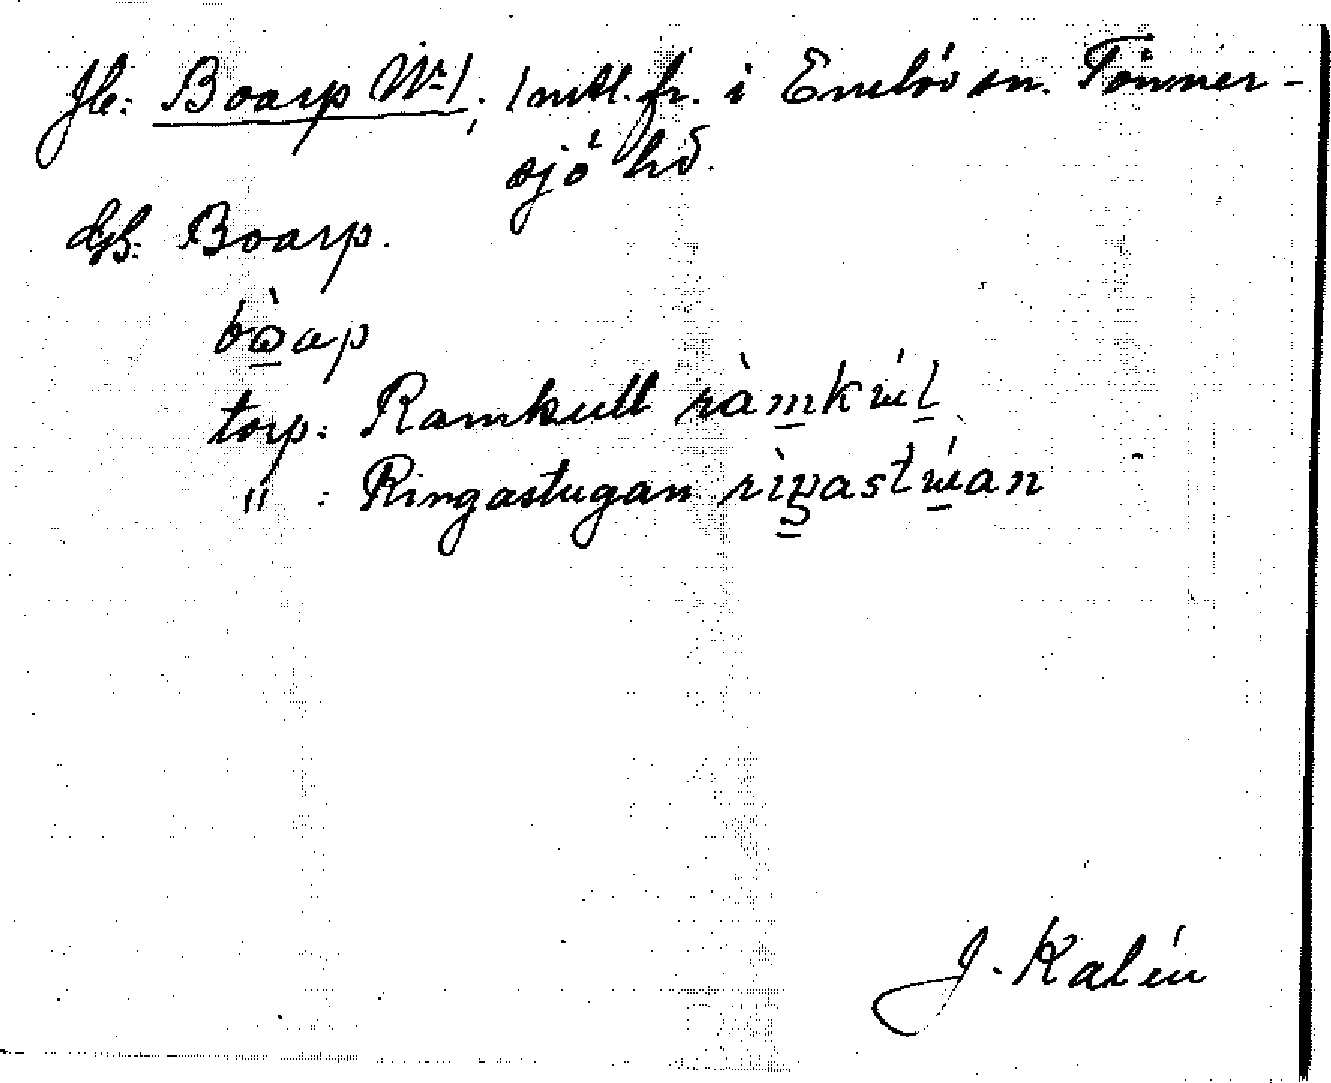 Jb: Boarp No 1; 1 mtl. fr. i Enslöv sn. Tönner-
sjö hd.
GS: Boarp.
bòap
torp: Ramkull ràmkúl
" : Ringastugan rìŋastúan
J. Kalén